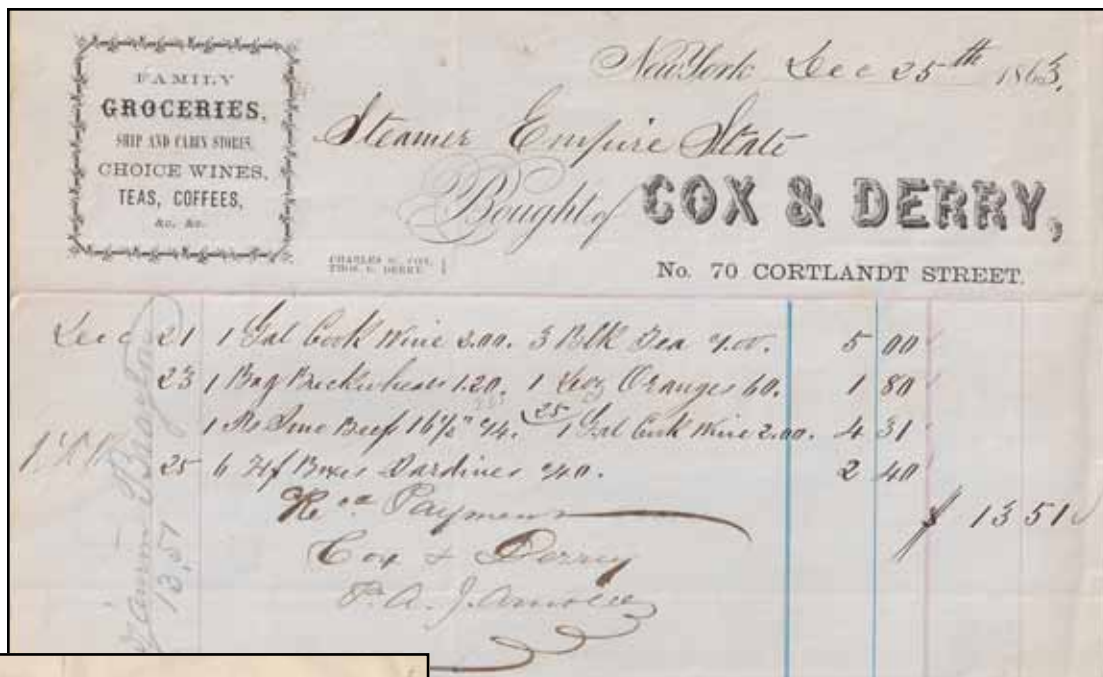 FAMILY
GROCERIES,
SHIP AND CABIN STORES,
CHOICE WINES,
TEAS, COFFEES,
&c. &c.
New York Dec 25th 1863.
Steamer Empire State
Bought of COX & DERRY,
CHARLES COX,
THOS. DERRY.
No. 70 CORTLANDT STREET.
Dec 21 1 Gal Cook Wine 2.00. 3 Blk Tea 1.00. 5 00
23 1 Bag Buckwheat 1.20. 1 Doz Oranges 60. 1 80
1 Beef 16 1/2" 14. 25 1 Gal Cook Wine 2.00. 4 31
25 6 Hf Boxes Sardines 40. 2 40
$ 13 51
Recd Payment
Cox & Derry
13,51